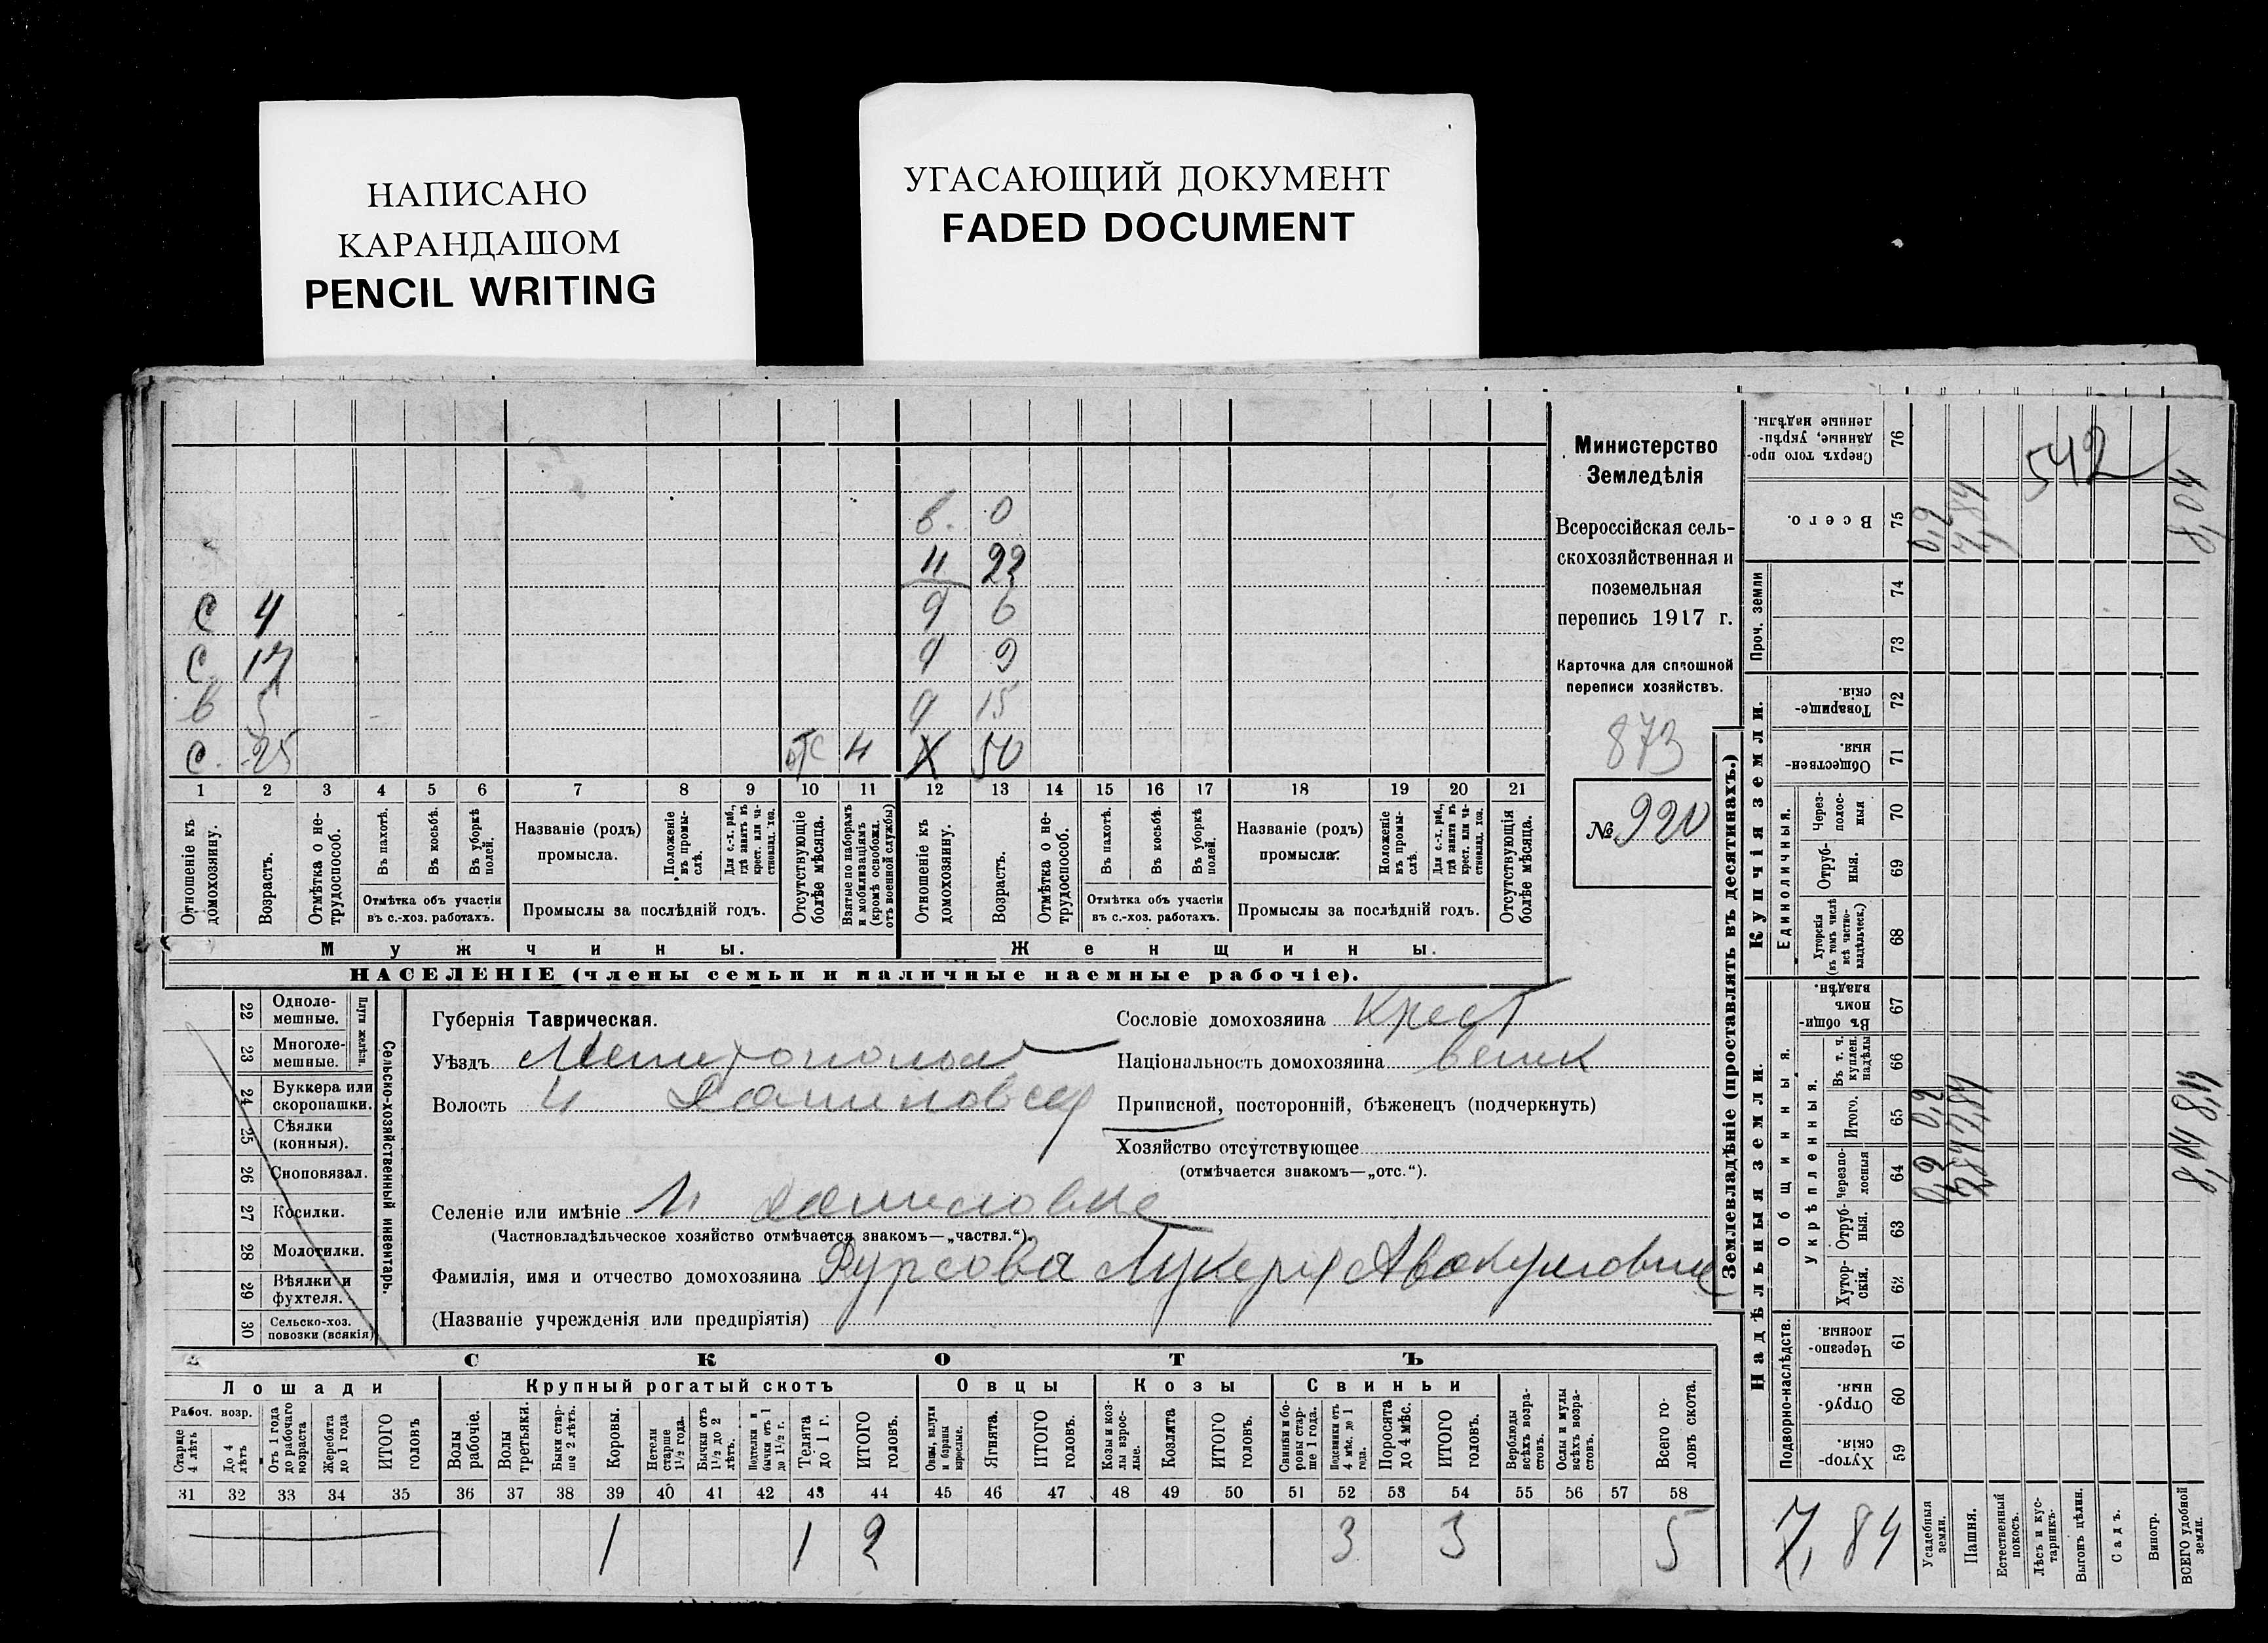 НАПИСАНО
КАРАНДАШОМ
PENCIL WRITING
УГАСАЮЩИЙ ДОКУМЕНТ
FADED DOCUMENT
в. 0
н 22
С 4 д 6
С. 17 д 9
в 5 д 15
С. 25 отс 4 Х 50
1 2 3 4 5 6 7 8 9 10 11 12 13 14 15 16 17 18 19 20 21
Отношеніе къ домохозяину.
Возрастъ.
Отмѣтка о нетрудоспособ.
Въ пахотѣ.
Въ косьбѣ.
Въ уборкѣ полей.
Отмѣтка объ участіи въ с.-хоз. работахъ.
Названіе (родъ) промысла.
Положеніе въ промыслѣ.
Для с.-х. раб., гдѣ занятъ въ крест. или частновлад. хоз.
Промыслы за послѣдній годъ.
Отсутствующіе болѣе мѣсяца.
Взятые по наборамъ и мобилизаціямъ (кромѣ освобожд. отъ военной службы)
Отношеніе къ домохозяину.
Возрастъ.
Отмѣтка о нетрудоспособ.
Въ пахотѣ.
Въ косьбѣ.
Въ уборкѣ полей.
Отмѣтка объ участіи въ с.-хоз. работахъ.
Названіе (родъ) промысла.
Положеніе въ промыслѣ.
Для с.-х. раб., гдѣ занята въ крест. или частновлад. хоз.
Промыслы за послѣдній годъ.
Отсутствующія болѣе мѣсяца.
Мужчины. Женщины.
НАСЕЛЕНІЕ (члены семьи и наличные наемные рабочіе).
Министерство
Земледѣлія
Всероссійская сель-
скохозяйственная и
поземельная
перепись 1917 г.
Карточка для сплошной
переписи хозяйствъ.
873
№ 920
22 Однолемешные.
23 Многолемешные.
Плуги желѣзн.
24 Буккера или скоропашки.
25 Сѣялки (конныя).
26 Сноповязал.
27 Косилки.
28 Молотилки.
29 Вѣялки и фухтеля.
30 Сельско-хоз. повозки (всякія)
Сельско-хозяйственный инвентарь.
Губернія Таврическая.
Уѣздъ Мелитопол
Волость Н Даниловск
Селеніе или имѣніе Н Даниловке
(Частновладѣльческое хозяйство отмѣчается знакомъ—„частвл.“).
Фамилія, имя и отчество домохозяина Фурсова Лукерья Авакумовна
(Названіе учрежденія или предпріятія)
Сословіе домохозяина Крест
Національность домохозяина велик
Приписной, посторонній, бѣженецъ (подчеркнуть)
Хозяйство отсутствующее
(отмѣчается знакомъ—„отс.“).
СКОТЪ
Лошади Крупный рогатый скотъ Овцы Козы Свиньи
Рабоч. возр.
Старше 4 лѣтъ
До 4 лѣтъ
Отъ 1 года до рабочаго возраста
Жеребята до 1 года
ИТОГО головъ
Волы рабочіе.
Волы третьяки.
Быки старше 2 лѣтъ.
Коровы.
Нетели старше 1½ года.
Бычки отъ 1½ до 2 лѣтъ.
Подтелки и бычки отъ 1 до 1½ г.
Телята до 1 г.
ИТОГО головъ.
Овцы, валухи и бараны взрослые.
Ягнята.
ИТОГО головъ.
Козы и козлы взрослые.
Козлята
ИТОГО головъ.
Свиньи и боровы старше 1 года.
Подсвинки отъ 4 мѣс. до 1 года.
Поросята до 4 мѣс.
ИТОГО головъ.
Верблюды всѣхъ возрастовъ.
Ослы и мулы всѣхъ возрастовъ.
Всего головъ скота.
31 32 33 34 35 36 37 38 39 40 41 42 43 44 45 46 47 48 49 50 51 52 53 54 55 56 57 58
1 1 2 3 3 5
Землевладѣніе (проставлять въ десятинахъ.)
Купчія земли.
Надѣльныя земли.
Сверхъ того проданные, укрѣпленные надѣлы. 76
Всего. 75
0,2
7,84
8,04
542
Проч. земли
74
73
Товарищескія. 72
Общественныя. 71
Единоличныя.
Черезполосныя 70
Отрубныя. 69
Хуторскія (въ томъ числѣ всѣ частновладѣльческ.) 68
Общинныя.
Въ общинномъ владѣн. 67
Укрѣпленныя.
Въ т. ч. куплен. надѣлы 66
Итого. 65
0,2
7,84
8,04
Черезполосныя 64
0,2
7,84
8,04
Отрубныя. 63
Хуторскія. 62
Подворно-наслѣдств.
Черезполосныя. 61
Отрубныя. 60
Хуторскія. 59
7,84
Усадебныя земли.
Пашня.
Естественный покосъ.
Лѣсъ и кустарникъ.
Выгонъ цѣлин.
Садъ.
Виногр.
ВСЕГО удобной земли.